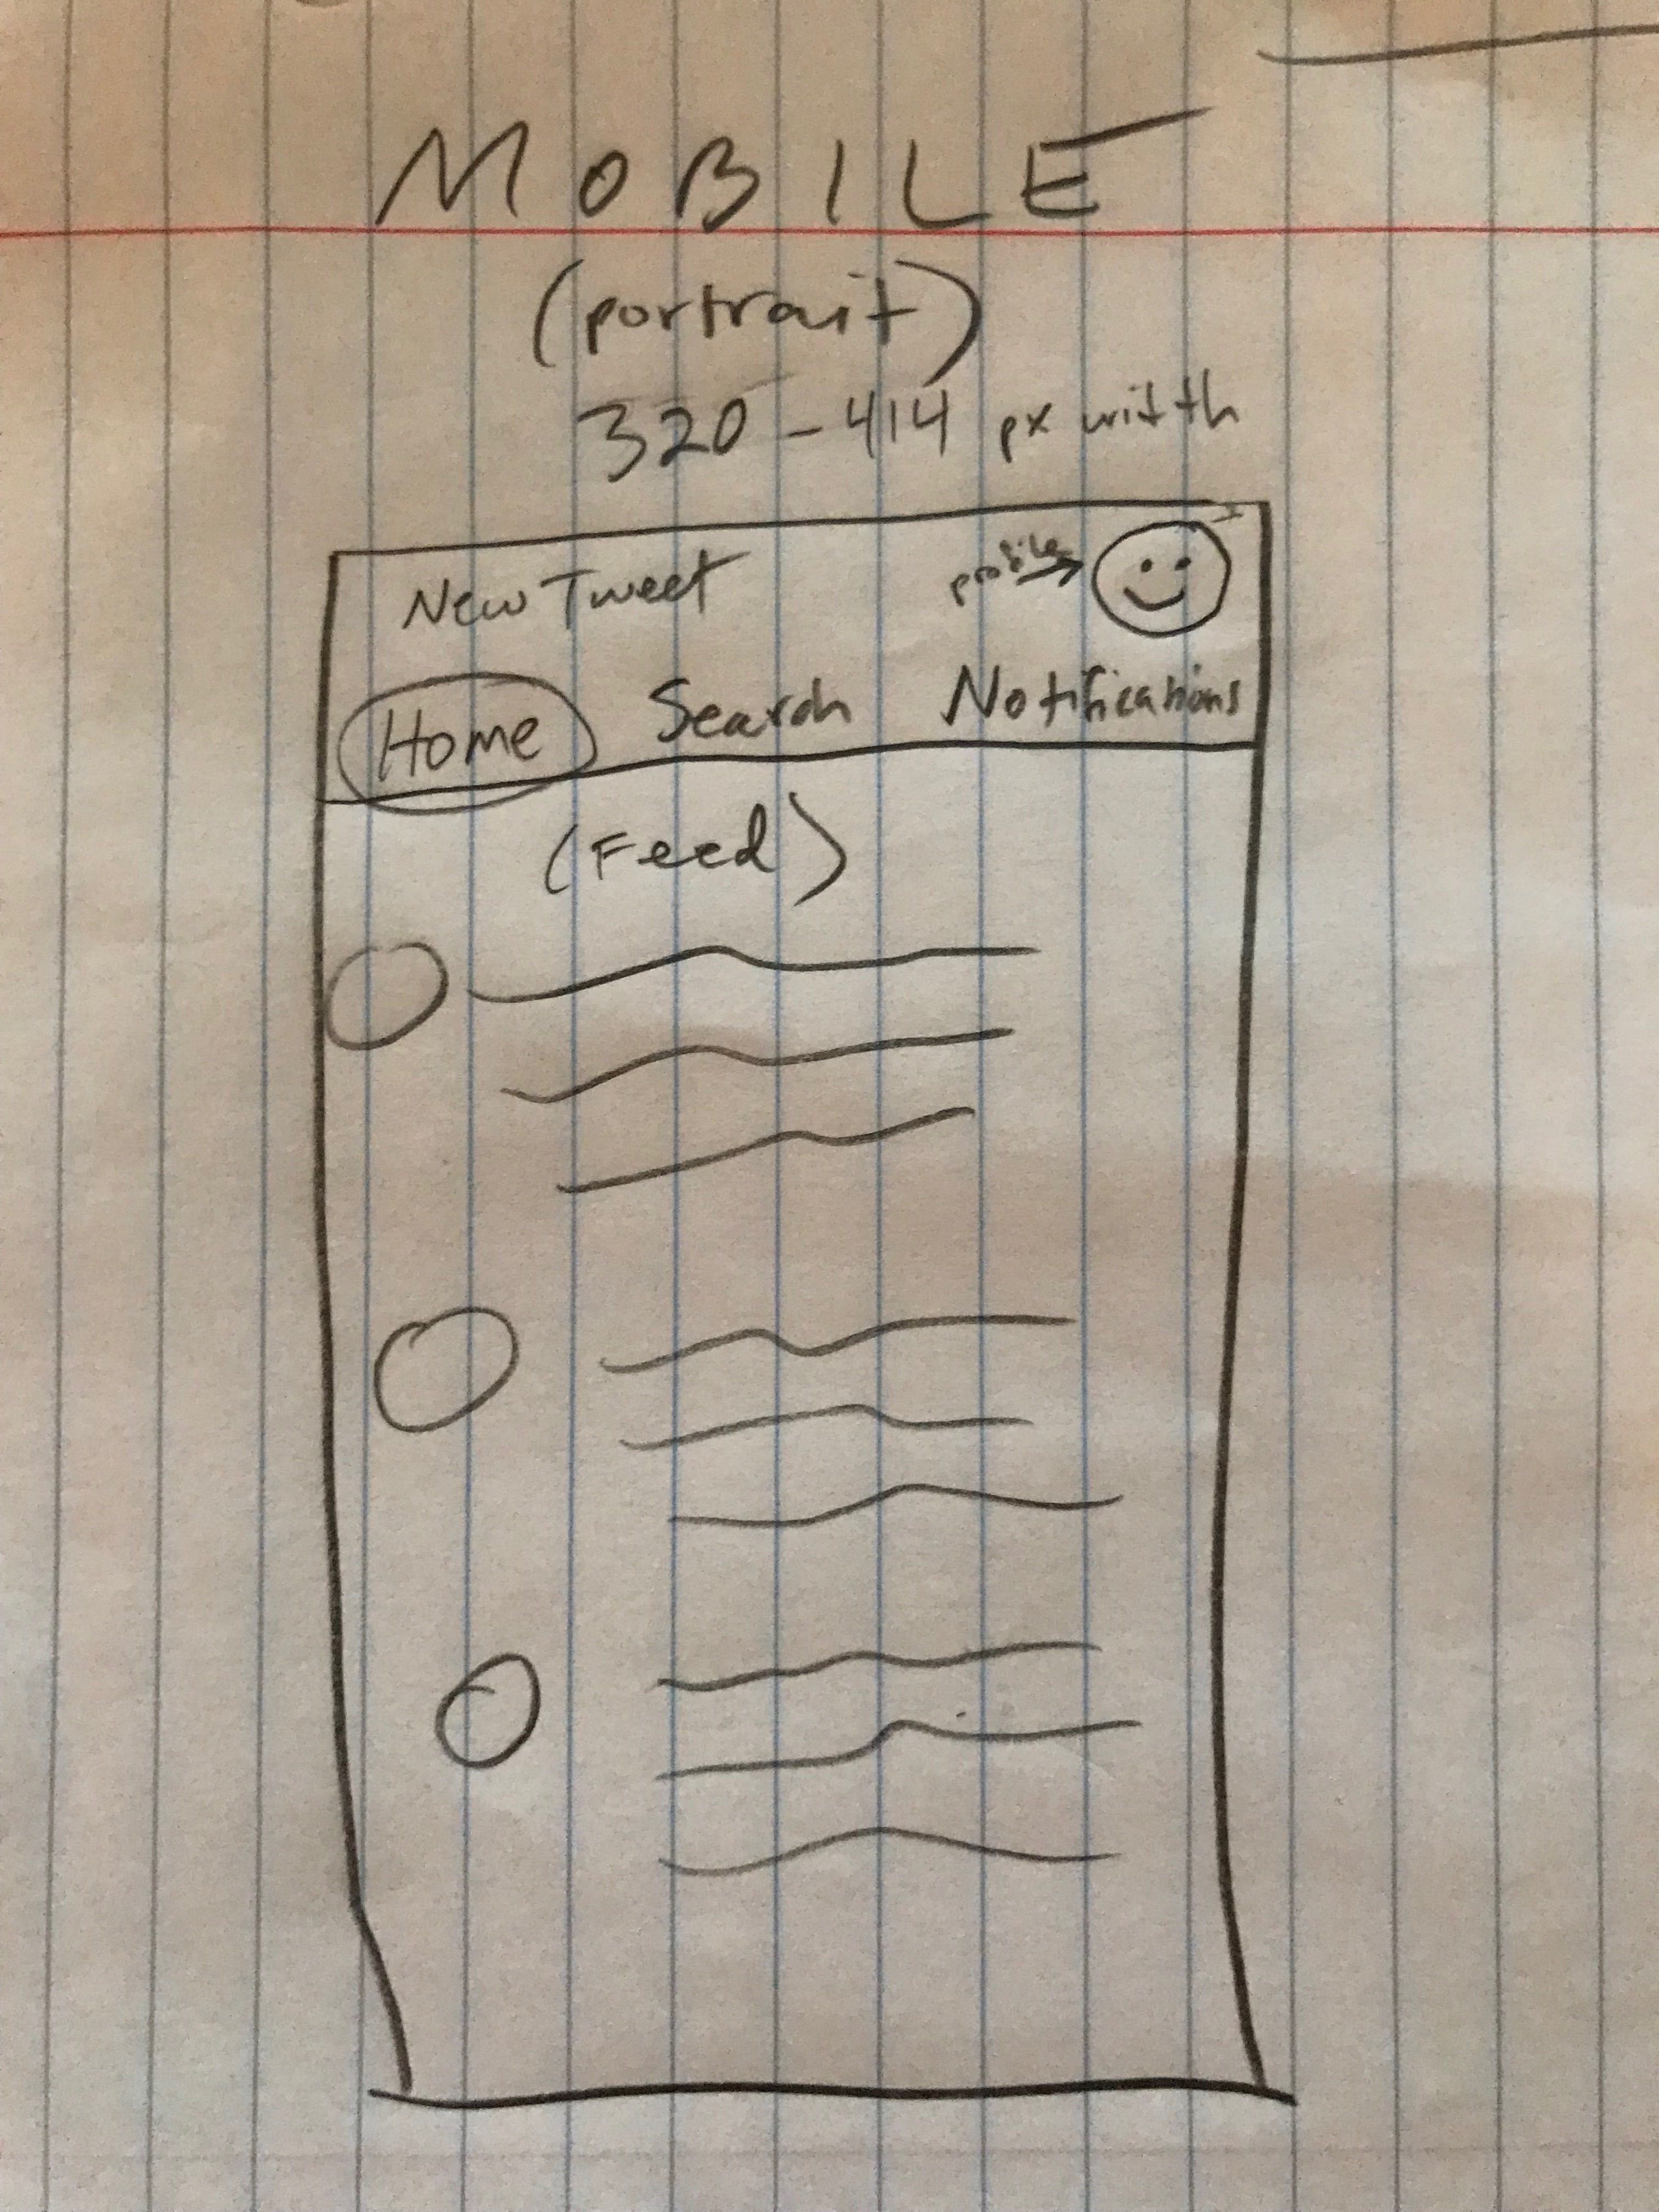 MOBILE
(portrait)
320-414 px witth
New Tweet
profile
Home Search Notifications
(Feed)